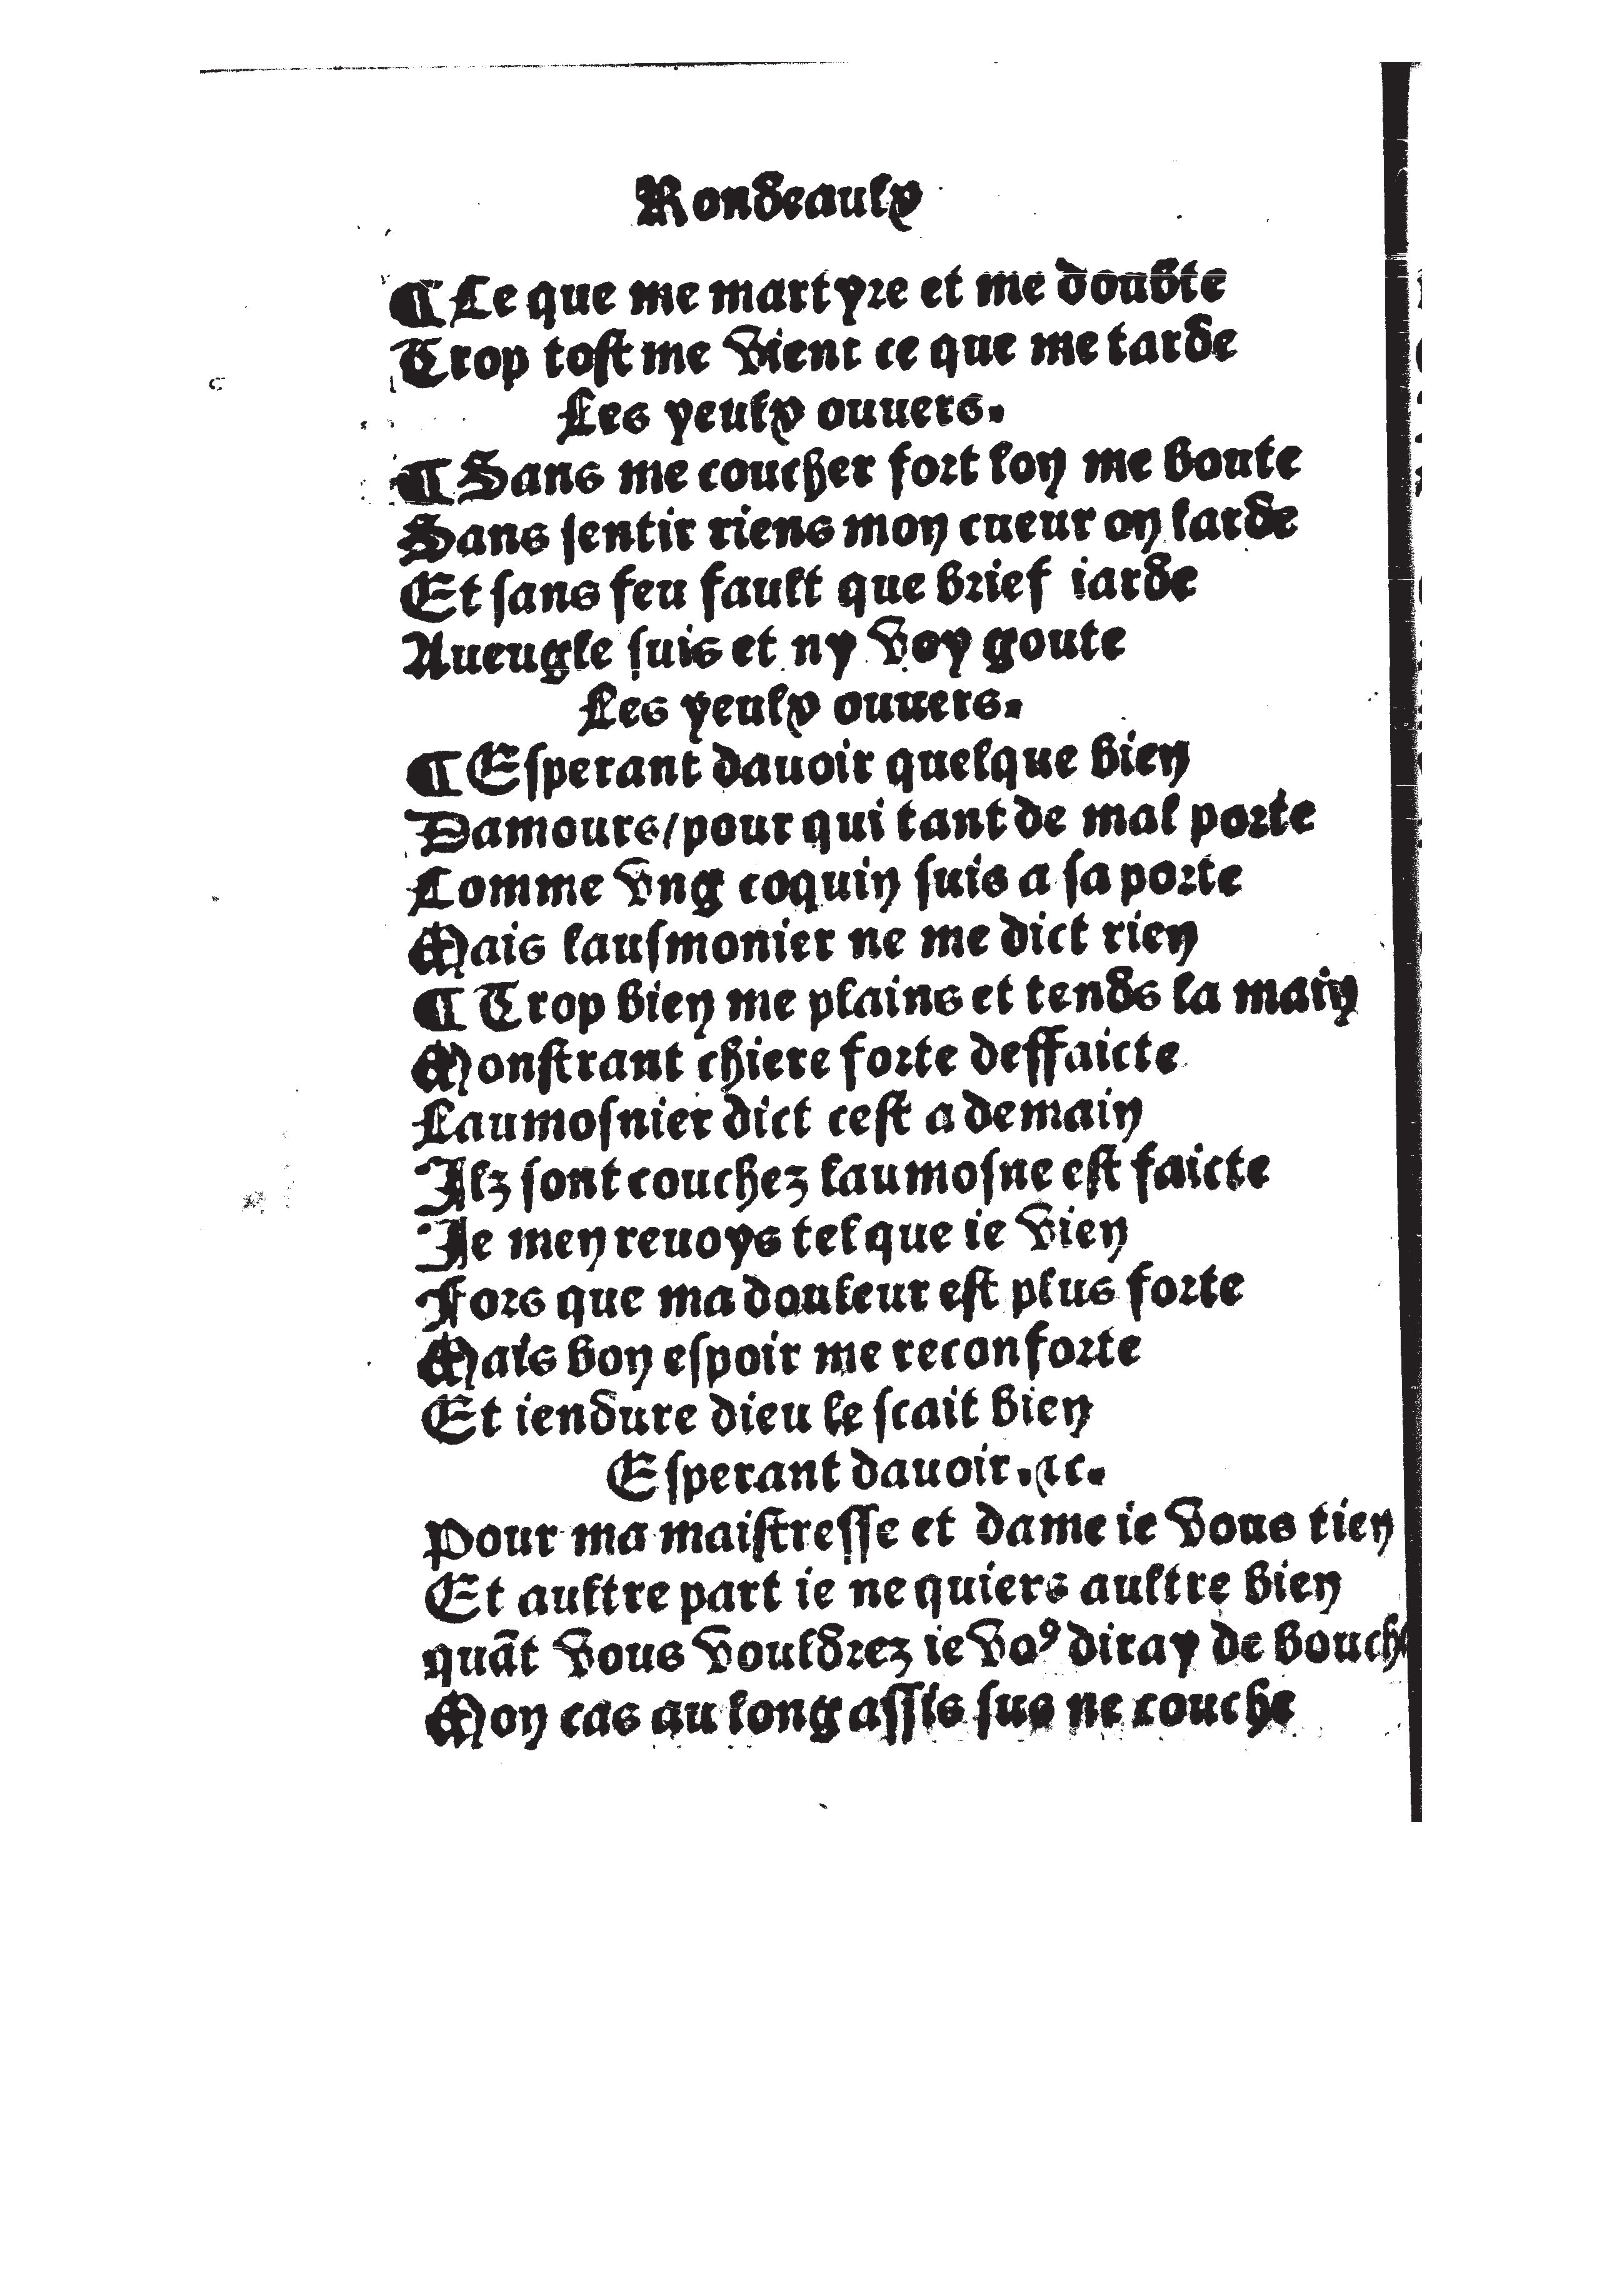 Rondeaulx
¶ Ce que me martyre et me doubte
Trop tost me vient ce que me tarde
Les yeulx ouuers.
¶ Sans me coucher fort lon me boute
Sans sentir riens mon cueur on larde
Et sans feu fault que brief iarde
Aueugle suis et ny voy goute
Les yeulx ouuers.
¶ Esperant dauoir quelque bien
Damours/pour qui tant de mal porte
Comme vng coquin suis a sa porte
Mais lausmonier ne me dict rien
¶ Trop bien me plains et tends la main
Monstrant chiere forte deffaicte
Laumosnier dict cest a demain
Ilz sont couchez laumosne est faicte
Je men reuoys tel que ie vien
Fors que ma douleur est plus forte
Mais bon espoir me reconforte
Et iendure dieu le scait bien
Esperant dauoir.⁊c.
Pour ma maistresse et dame ie vous tien
Et aultre part ie ne quiers aultre bien
quãt vous vouldrez ie voꝰ diray de bouche
Mon cas au long assis sus ne couche